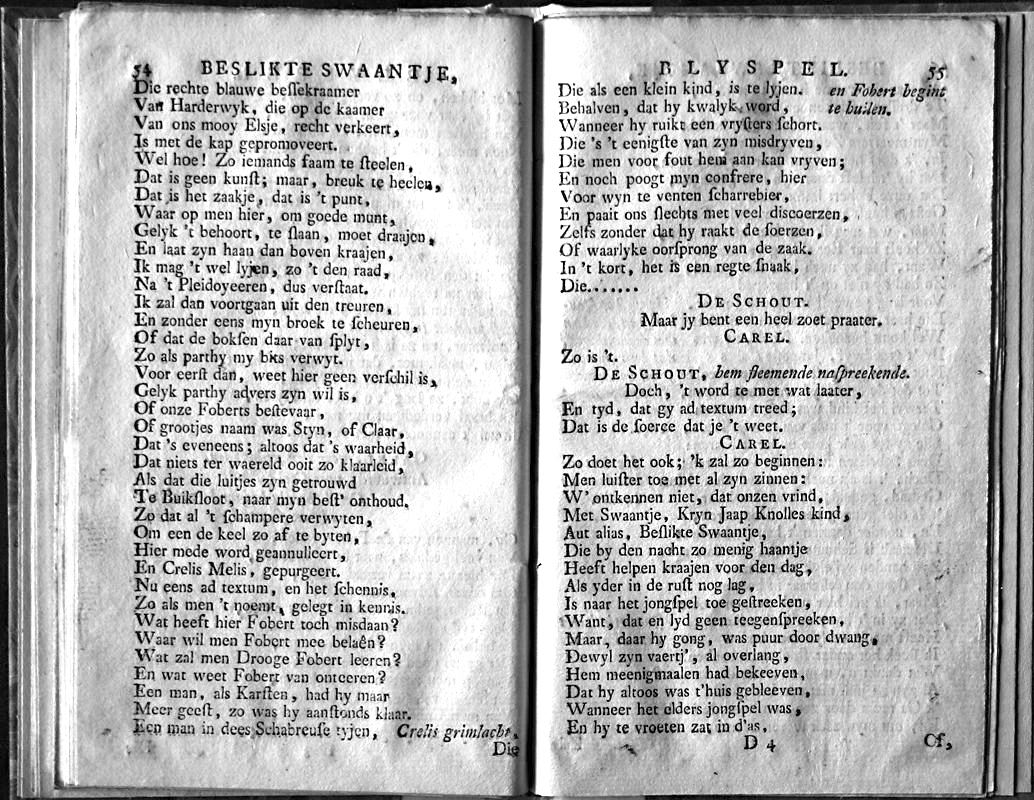 54 BESLIKTE SWAANTJE,
Die rechte blauwe beſſekraamer
Van Harderwyk, die op de kaamer
Van ons mooy Elsje, recht verkeert,
Is met de kap gepromoveert.
Wel hoe! Zo iemands faam te ſteelen,
Dat is geen kunſt; maar, breuk te heelen,
Dat is het zaakje, dat is 't punt,
Waar op men hier, om goede munt,
Gelyk 't behoort, te ſlaan, moet draajen,
En laat zyn haan dan boven kraajen,
Ik mag 't wel lyjen, zo 't den raad,
Na 't Pleidoyeeren, dus verſtaat.
Ik zal dan voortgaan uit den treuren,
En zonder eens myn broek te ſcheuren,
Of dat de bokſen daar van ſplyt,
Zo als parthy my bits verwyt.
Voor eerſt dan, weet hier geen verſchil is,
Gelyk parthy advers zyn wil is,
Of onze Foberts beſtevaar,
Of grootjes naam was Styn, of Claar,
Dat 's eveneens; altoos dat 's waarheid,
Dat niets ter waereld ooit zo klaarleid,
Als dat die luitjes zyn getrouwd
Te Buikſloot, naar myn beſt' onthoud.
Zo dat al 't ſchampere verwyten,
Om een de keel zo af te byten,
Hier mede word geannulleert,
En Crelis Melis, gepurgeert.
Nu eens ad textum, en het ſchennis,
Zo als men 't noemt, gelegt in kennis.
Wat heeft hier Fobert toch misdaan?
Waar wil men Fobert mee belaên?
Wat zal men Drooge Fobert leeren?
En wat weet Fobert van onteeren?
Een man, als Karſten, had hy maar
Meer geeſt, zo was hy aanſtonds klaar.
Een man in dees Schabreuſe tyjen, Crelis grimlacht,
Die
BLYSPEL. 55
Die als een klein kind, is te lyjen. en Fobert begint
Behalven, dat hy kwalyk word, te huilen.
Wanneer hy ruikt een vryſters ſchort.
Die 's 't eenigſte van zyn misdryven,
Die men voor fout hem aan kan vryven;
En noch poogt myn confrere, hier
Voor wyn te venten ſcharrebier,
En paait ons ſlechts met veel discoerzen,
Zelfs zonder dat hy raakt de ſoerzen,
Of waarlyke oorſprong van de zaak.
In 't kort, het is een regte ſnaak,
Die.......
DE SCHOUT.
Maar jy bent een heel zoet praater.
CAREL.
Zo is 't.
DE SCHOUT, hem fleemende naſpreekende.
Doch, 't word te met wat laater,
En tyd, dat gy ad textum treed;
Dat is de ſoerce dat je 't weet.
CAREL.
Zo doet het ook; 'k zal zo beginnen:
Men luiſter toe met al zyn zinnen:
W' ontkennen niet, dat onzen vrind,
Met Swaantje, Kryn Jaap Knolles kind,
Aut alias, Beſlikte Swaantje,
Die by den nacht zo menig haantje
Heeft helpen kraajen voor den dag,
Als yder in de ruſt nog lag,
Is naar het jongſpel toe geſtreeken,
Want, dat en lyd geen teegenſpreeken,
Maar, daar hy gong, was puur door dwang,
Dewyl zyn vaertj', al overlang,
Hem meenigmaalen had bekeeven,
Dat hy altoos was t'huis gebleeven,
Wanneer het elders jongſpel was,
En hy te vroeten zat in d'as,
D 4 Of,